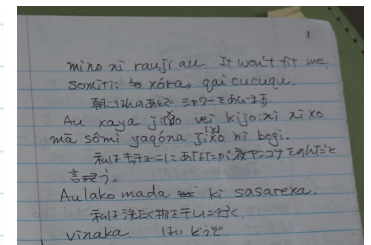 1
mino ni rauji au It won't fit me
somiti: xóra, qai cucuqu.
朝ごはんのあとで シャワーをあびます
Au xaya jixo vei kijo:ni ni xo
mā sómi yaqóna jixo ni bogi.
私はキチョーニにあなたが 夜ヤンゴナをのんだと
言う。
Aulako mada ki sasarexa.
私は洗たく物を干しに行く
vinaka はい どうぞ